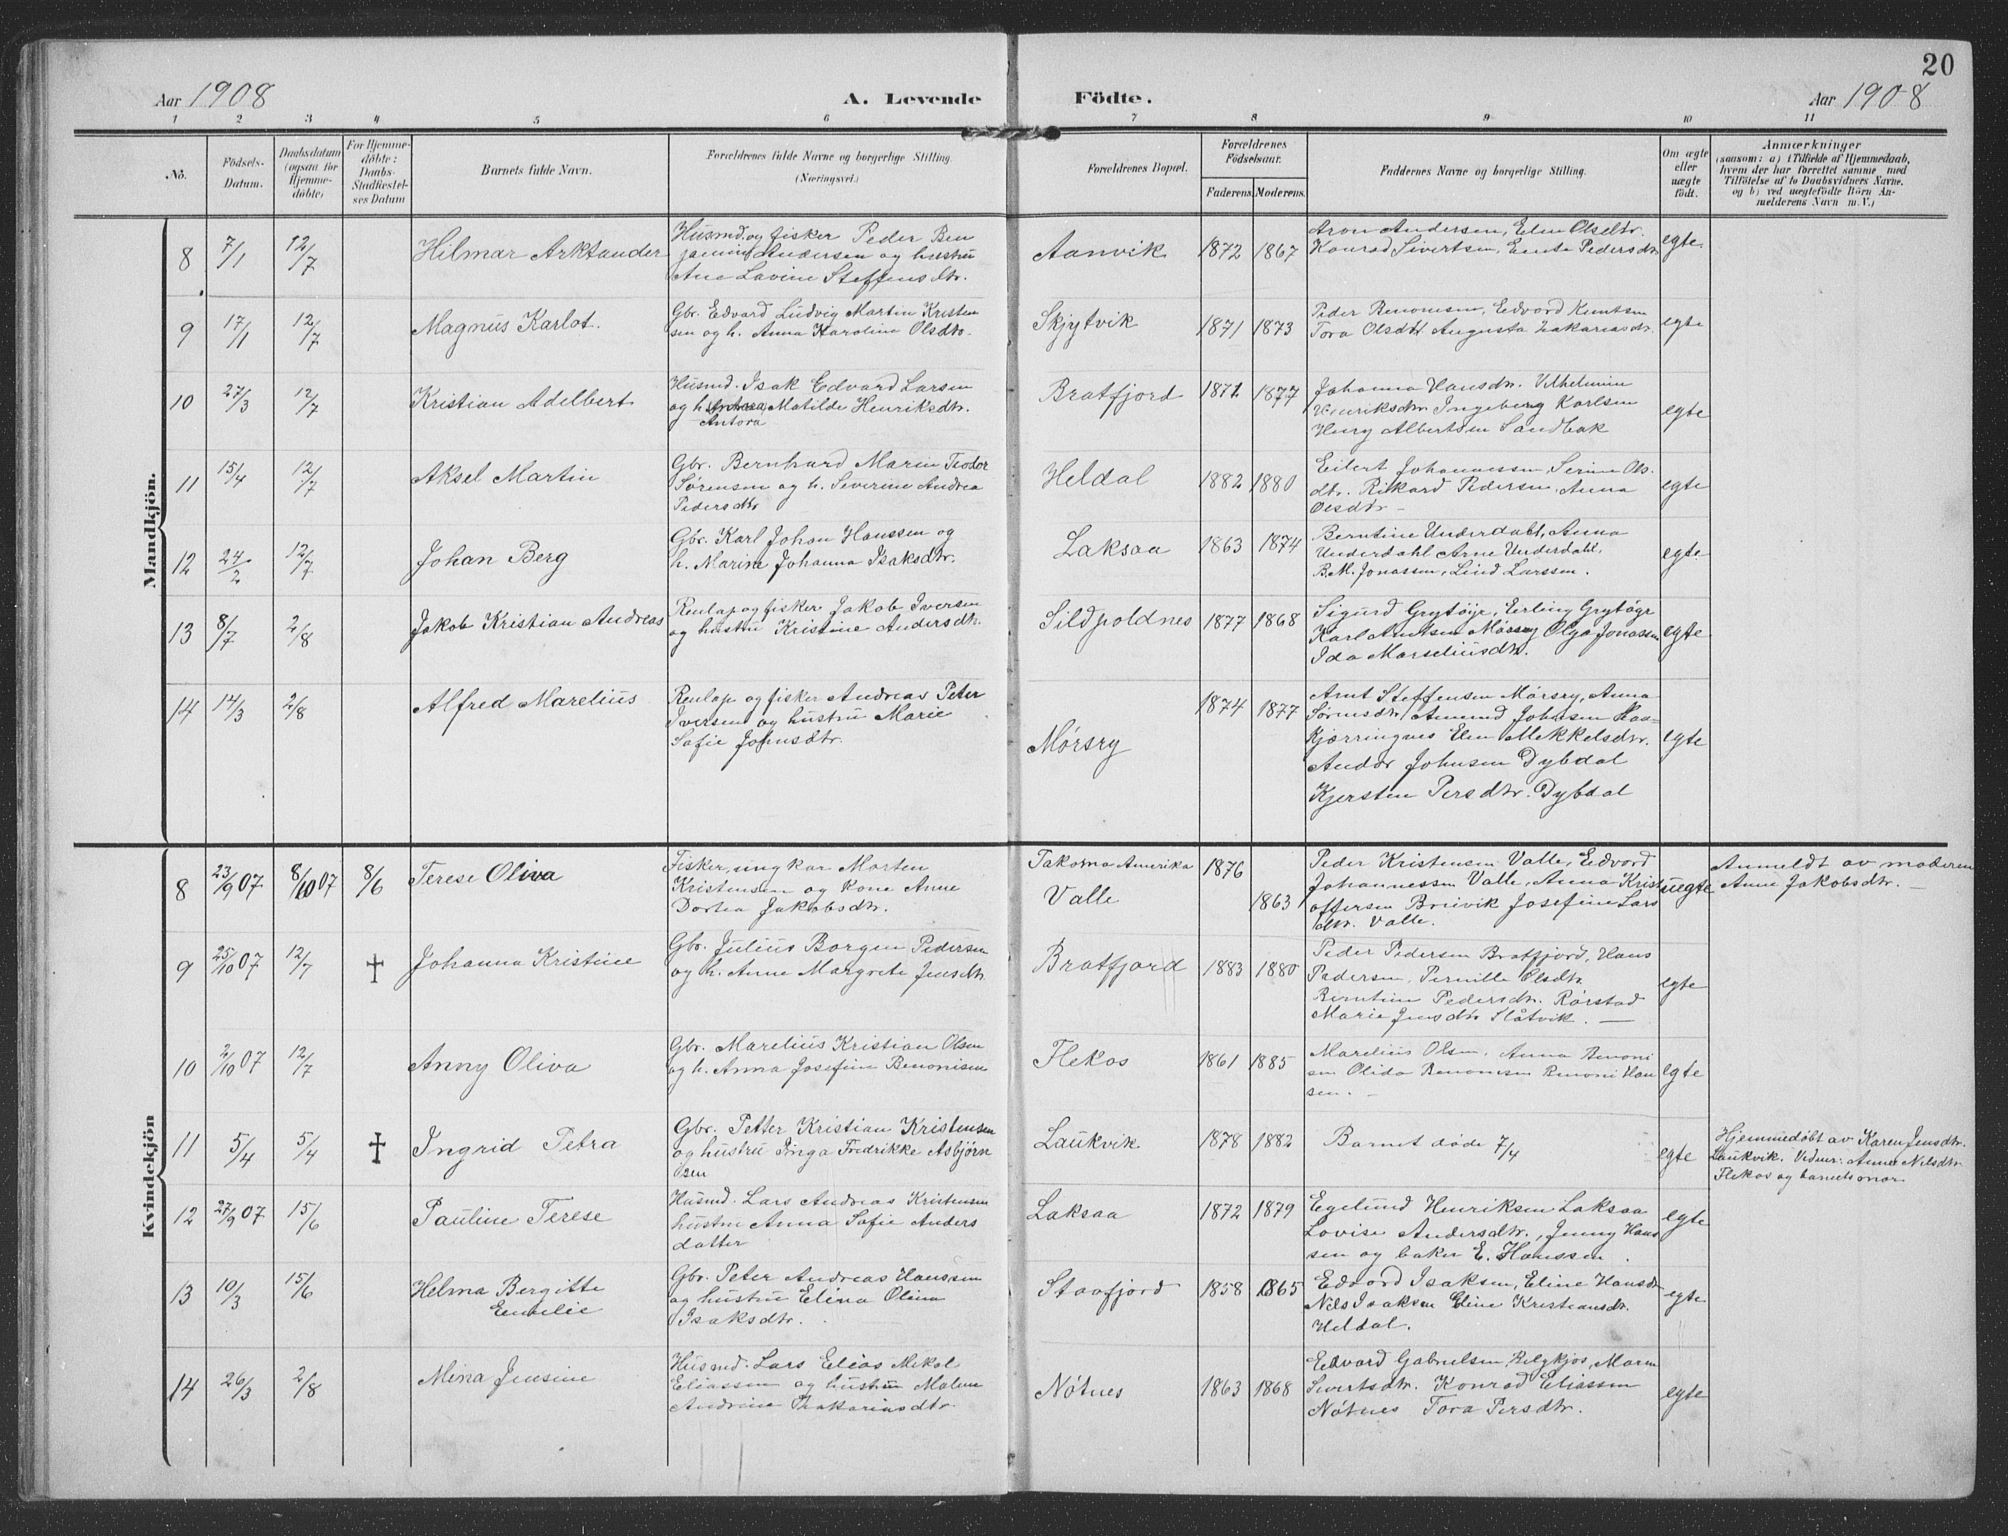 20
Aar 1908
A. Levende Födte.
Aar 1908
1 2 3 4 5 6 7 8 9 10 11
No.
Födsels-Datum.
Daabsdatum (ogsaa for Hjemme-döbte)
For Hjemme-döbte: Daabs-Stadfæstel-ses Datum
Barnets fulde Navn.
Forældrenes fulde Navne og borgerlige Stilling.
(Næringsvei.)
Forældrenes Bopæl.
Forældrenes Födselsaar.
Faderens. Moderens.
Faddernes Navne og borgerlige Stilling.
Om ægte eller uægte födt.
Anmærkninger
(saasom: a) i Tilfælde af Hjemmedaab,
hvem der har forrettet samme med
Tilföielse af to Daabsvidners Navne.
og b) ved uægtefödte Börn An-
melderens Navn m. V.)
Mandkjön.
8 7/1 12/7 Hilmar Arktander
Husmd. og fisker Peder Ben
jamin Andersen og hustru
Ane Lovine Steffensdtr.
Aanvik 1872 1867
Aron Andersen, Elen Olsdtr.
Konrad Sivertsen, Pedersdtr
egte
9 17/1 12/7 Magnus Karlot.
Gbr. Edvard Ludvig Martin Kristen
sen og h. Anna Karoline Olsdtr.
Skjytvik 1871 1873
Peder Benonisen, Edvard Knutsen
Tora Olsdtr Augusta Zakariasdtr.
egte
10 27/3 12/7 Kristian Adelbert
Husmd. Isak Edvard Larsen
og h. Matilde Henriksdtr.
Antora
Bratfjord 1871 1877
Johanna Hansdtr. Vilhelmine
Henriksdtr Ingeberg Karlsen
Henry Albertsen Sandbak
egte
11 15/4 12/7 Aksel Martin
Gbr. Bernhard Marin Teodor
Sørensen og h. Severine Andrea
Pedersdtr
Heldal 1882 1880
Eilert Johannessen, Serine Ols-
dtr. Rikard Pedersen, Anna
Olsdtr -
egte
12 24/2 12/7 Johan Berg
Gbr. Karl Johan Hanssen og
h. Marine Johanna Isaksdtr.
Laksaa 1863 1874
Berntine Underdahl, Anna
Underdahl Arne Underdahl,
B.M. Jonassen, Lind Larssen.
egte
13 8/7 2/8 Jakob Kristian Andreas
Renlap og fisker Jakob Iversen
og hustru Kristine Andersdtr.
Sildpoldnes 1877 1868
Sigurd Grytøjr, Erling Grytøgr
Karl Arntsen Mørsry Olga Jonassen
Ida Marseliusdtr.
egte
14 14/3 2/8 Alfred Marelius
Renlap og fisker Andreas Peter
Iversen og hustru Marie
Sofie Johnsdtr.
Mørsry 1874 1877
Arnt Steffensen Mørsry, Anna
Sørensdtr, Amund Johnsen Kaa-
kjærringnes Elen Mekkelsdtr.
Andor Johnsen Dybdal
Kjersten Persdtr. Dybdal
egte
Kvindekjön
8 23/9 07 8/10 07 8/6 Terese Oliva
Fisker, ungkar Morten
Kristensen og kone Anne
Dortea Jakobsdtr.
Takoma Amerika 1876
Valle 1863
Peder Kristensen Valle, Edvard
Johannessen Valle, Anna Krist
offersen Breivik Josefine Lars
dtr. Valle.
uegte
Anmeldt av moderen
Anne Jakobsdtr. -
9 25/10 07 12/7 † Johanna Kristine
Gbr. Julius Borgen Pedersen
og h. Anne Margrete Jensdtr
Bratfjord 1883 1880
Peder Pedersen Bratfjord, Hans
Pedersen, Pernille Olsdtr.
Berntine Pedersdtr. Rørstad
Marie Jensdtr Slåtvik. -
egte
10 2/10 07 12/7 Anny Oliva
Gbr. Marelius Kristian Olsen
og h. Anna Josefine Benonisen
Flekos 1861 1885
Marelius Olsen, Anna Benoni
sen Olida Benonisen Benoni Han
sen. -
egte
11 5/4 5/4 † Ingrid Petra
Gbr. Petter Kristian Kristensen
og hustru Inga Fredrikke Asbjørn
sen
Laukvik 1878 1882
Barnet døde 7/4
egte
Hjemmedøbt av Karen Jensdtr.
Laukvik. Vidner: Anne Nilsdtr
Flekos og barnets mor.
12 27/9 07 15/6 Pauline Terese
Husmd. Lars Andreas Kristensen
hustru Anna Sofie Anders
datter
Laksaa 1872 1879
Egelund Henriksen Laksaa
Lovise Andersdtr., Jenny Hans
sen og baker E. Hanssen.
egte
13 10/3 15/6 Helma Bergitte
Emelie
Gbr. Peter Andreas Hanssen
og hustru Elina Olina
Isaksdtr.
Stavfjord 1858 1865
Edvard Isaksen, Eline Hansdtr
Nils Isaksen Eline Kristiansdtr.
Heldal.
egte
14 26/3 2/8 Mina Jensine
Husmd. Lars Elias Mikal
Eliassen og hustru Malene
Andrine Zakariasdtr.
Nøtnes 1863 1868
Edvard Gabrielsen, Helgkjos, Maren
Sivertsdtr. Konrad Eliassen
Nøtnes Tora Persdtr.
egte